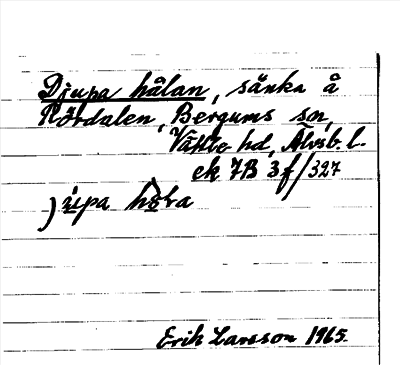 Djupa hålan, sänka å
Rördalen, Bergums sn,
Vättle hd, Älvsb. l.
ek 7B 3f/327
jupa
Erik Larsson 1965.